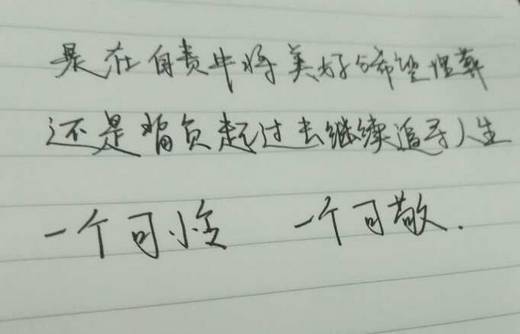 是在自责中将美好的希望埋葬
还是背负起过去继续追寻人生
一个可怜 一个可敬.